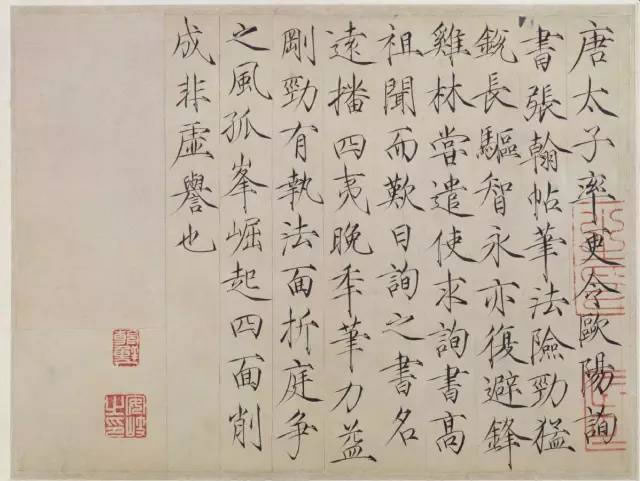 唐太子率更令歐陽詢
書張翰帖筆法險勁猛
銳長驅智永亦復避鋒
雞林當遣使求詢書高
祖聞而歎曰詢之書名
遠播四夷晚年筆力益
剛勁有執法面折庭爭
之風孤峯崛起四面削
成非虛譽也